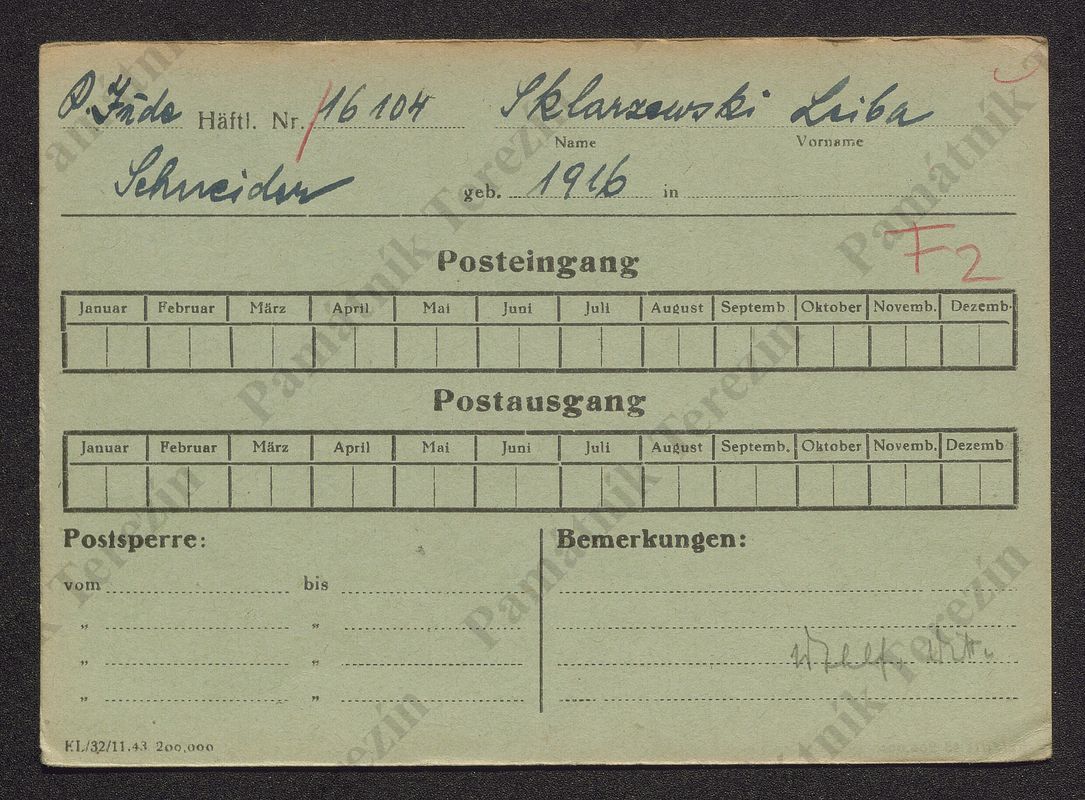 P. Jude Häftl. Nr. 16 104 Sklarzewski Leiba
Name Vorname
Schneider geb. 1916 in
F2
Posteingang
Januar Februar März April Mai Juni Juli August Septemb Oktober Novemb. Dezemb.
Postausgang
Januar Februar März April Mai Juni Juli August Septemb. Oktober Novemb. Dezemb
Postsperre: Bemerkungen:
vom bis
" "
" "
" "
KL/32/11.43 200.000
Památník Terezín